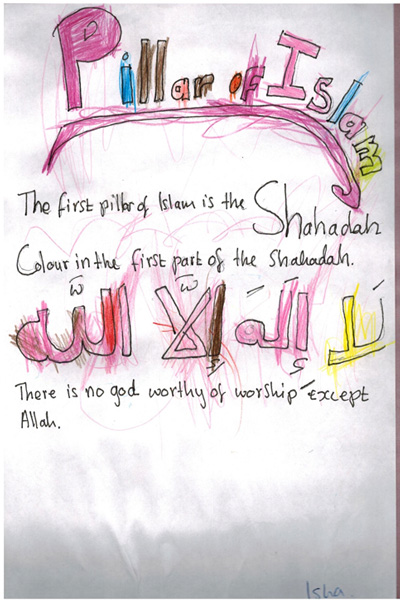 Pillar of Islam
The first pillar of Islam is the Shahadah
Colour in the first part of the Shahadah.
لَا إِلَٰهَ إِلَّا اللّٰه
There is no god worthy of worship except
Allah.
Isha